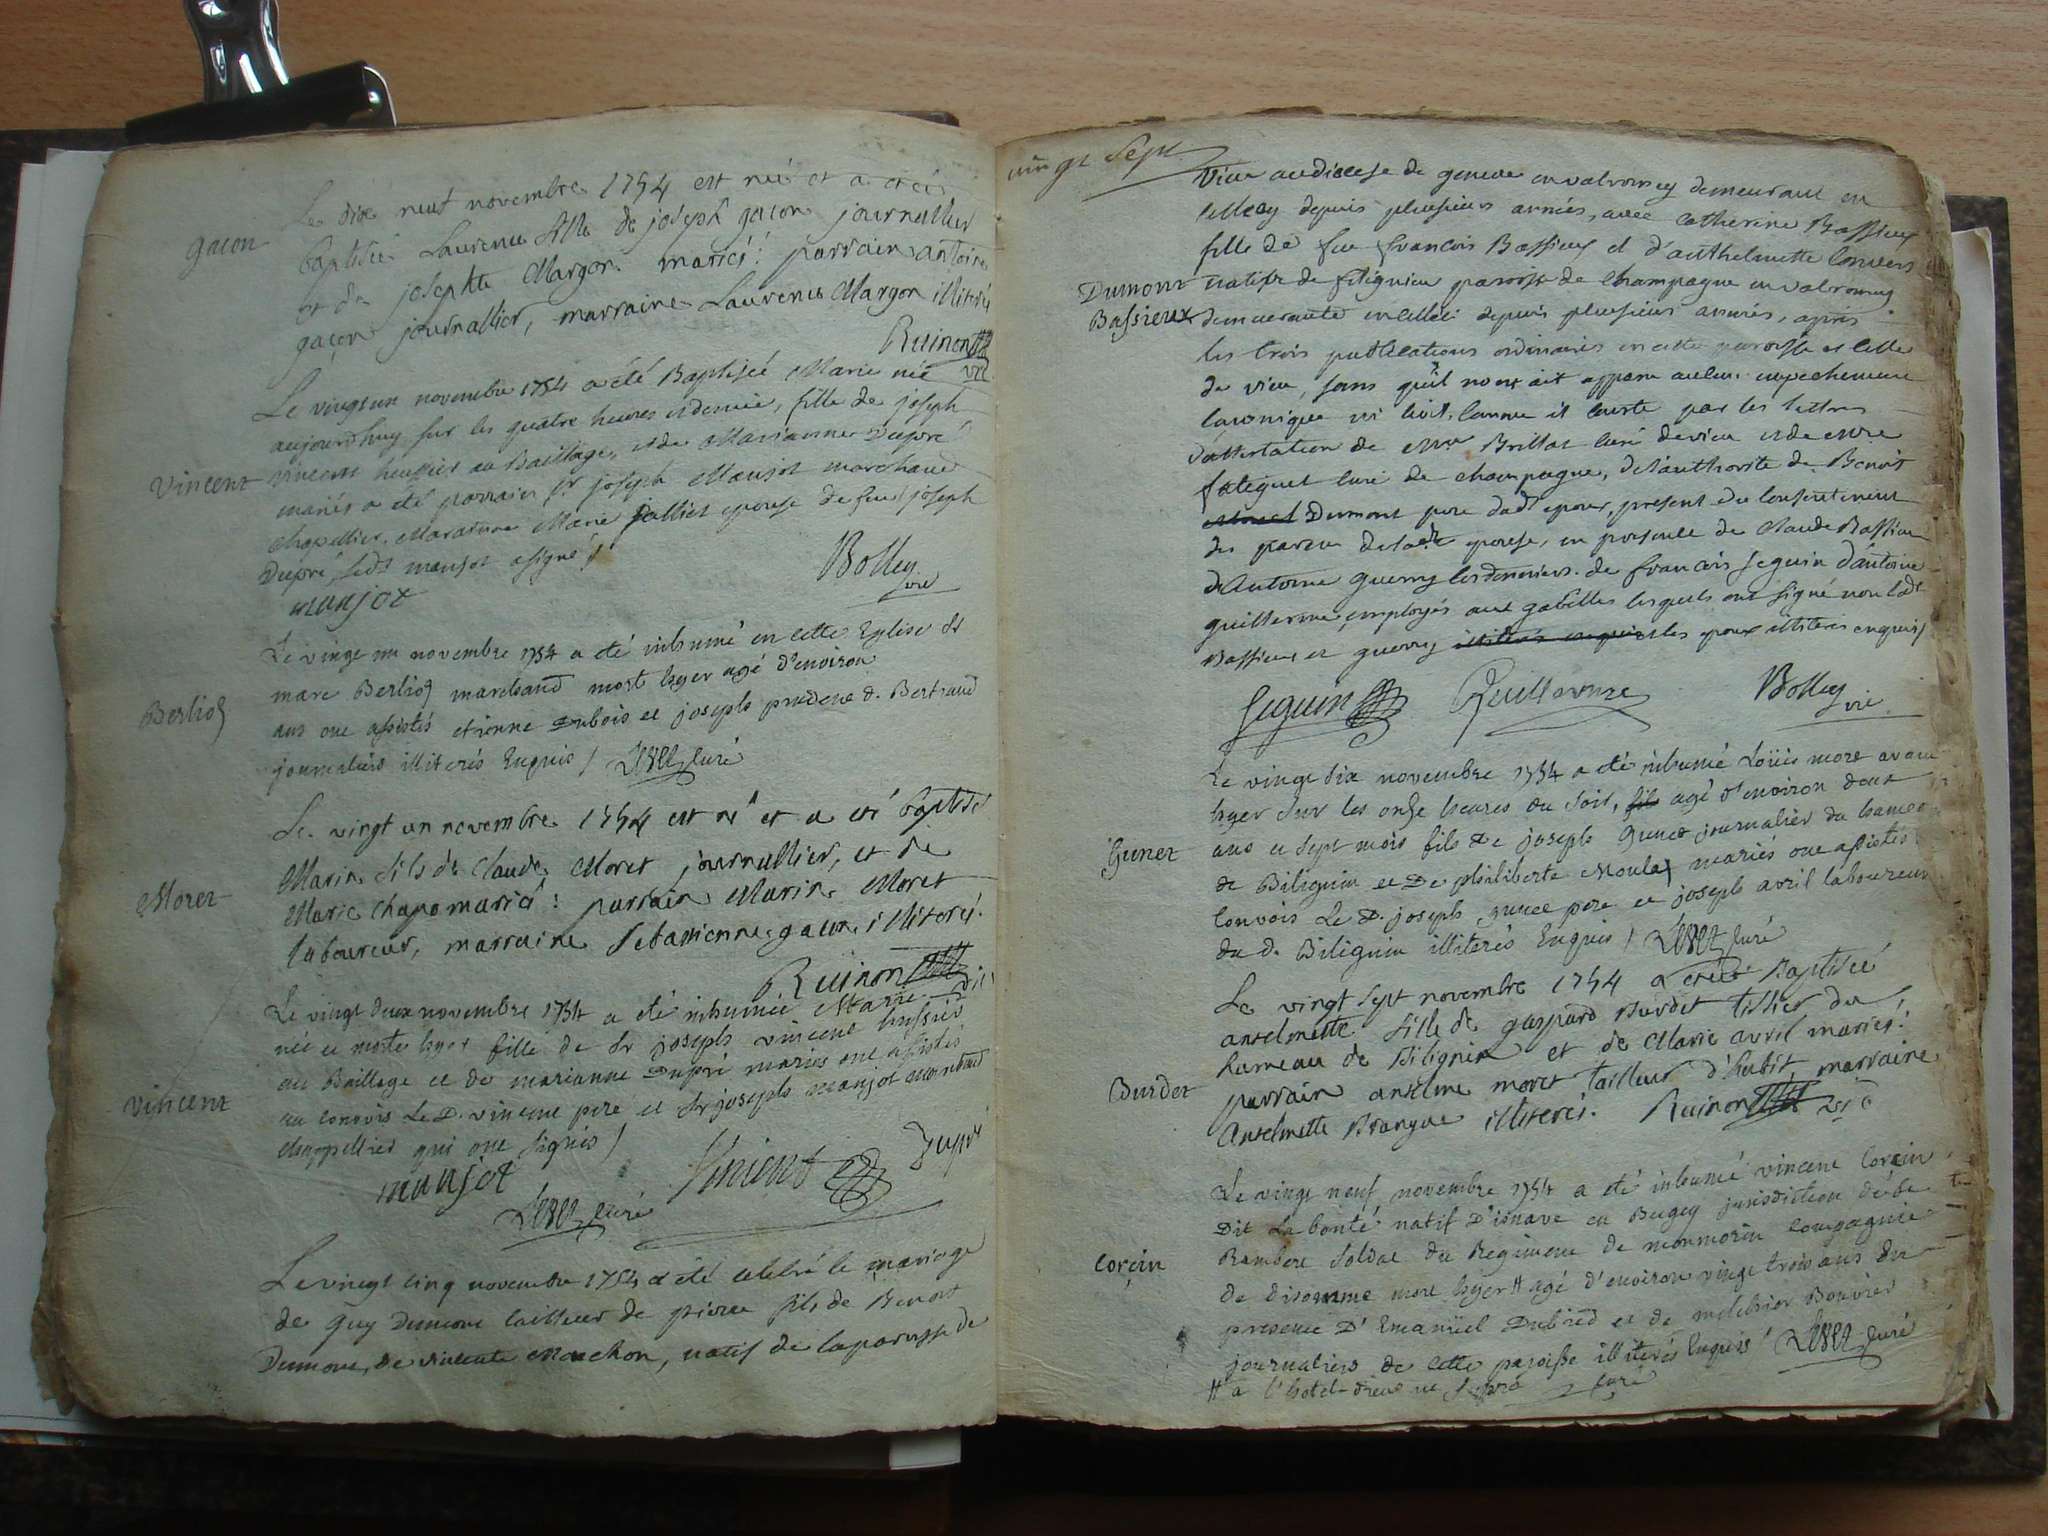 Le dix neuf novembre 1754 est née et a été
gaçon
baptisée Laurence fille de joseph gaçon journallier
et de josephte Margon mariés: parrain antoine
gaçon journallier, marraine Laurence Margon illiterés
Ruinon
vic
Le vingtun novembre 1754 a été Baptisée Marie née
aujourd'huy sur les quatre heures et demie, fille de joseph
Vincent
vincent huissier au Baillage, et de Marianne Dupré
mariés a été parrain sr joseph Manjot marchand
chapellier, Maraine Marie Jallier epouse de feu joseph
Dupré, led manjot a signé /
manjot
Bolley
vic
Le vingt un novembre 1754 a été inhumé en cette Eglise sr
Berlioz
marc Berlioz marchand mort hyer agé d'environ
ans ont assistés etienne Dubois et joseph prudent d. Bertrand
journaliers illiterés Enquis / curé
Le vingt un novembre 1754 est né et a été baptisé
Moret
Marin fils de Claude Moret journallier, et de
Marie Chapo mariés: parrain Marin Moret
laboureur, marraine Sebastienne gaçon illiterés.
Ruinon
Le vingt deux novembre 1754 a été inhumée Marie
née et morte hyer fille de sr joseph vincent huissier
Vincent
au Baillage et de marianne Dupré mariés ont assistés
au convois Le D. vincent pere et sr joseph manjot marchand
chappellier qui ont signés /
manjot
Vincent
Dupré
curé
Le vingt cinq novembre 1754 a été celebré le mariage
de Guy Dumont tailleur de pierre fils de Benoit
Dumont, de vincente Mochon, natif de la paroisse de
vingt Sept
Vieu au diocese de geneve en valromey demeurant en
depuis plusieurs années, avec Catherine Bassieux
fille de feu françois Bassieux et d'anthelmette Convers
Dumont
native de filignieu paroisse de Champagne en valromey
Bassieux
demeurante depuis plusieurs années, apres
les trois publications ordinaires en cette paroisse et celle
de vieu, sans qu'il nous ait apparu aucun empechement
canonique ni civil, comme il conste par les lettres
d'attestation de Brillat curé de vieu et de
curé de champagne, de l'authorité de Benoit
Dumont pere dudt epoux, present du consentement
des parens de lade epouse, en presence de Claude Bassieux
d'Antoine guerry de françois Seguin d'antoine
guillerme employés aux gabelles lesquels ont signé non ledt
Bassieux et guerry les epoux illiterés enquis /
Seguin
Guillerme
Bolley
vic
Le vingt six novembre 1754 a été inhumé Loüis mort avant
hyer sur les onze heures du soir, fils agé d'environ deux
Gunet
ans et sept mois fils de joseph Gunet journalier du hameau
de Bilignin et De philiberte mariés ont assistés
convois Le D. joseph gunet pere et joseph avril laboureur
du d. Bilignin illiterés Enquis / curé
Le vingt sept novembre 1754 a été Baptisée
antelmette fille de gaspard Burdet tissier du
hameau de Bilignin et de Marie avril mariés:
Burdet
parrain antelme moret tailleur d'habit, marraine
Antelmette Brangue illiterés. Ruinon vic
Le vingt neuf novembre 1754 a été inhumé vincent Corçin
Dit La bonté natif D'isnave en Bugey jurisdiction de st
Corçin
Rambert soldat du Regiment de monmorin compagnie
de disomme mort hyer # agé d'environ vingt trois ans en
presence D'Emanüel Dubied et de melchior Bouvier
journaliers de cette paroisse illiterés Enquis / curé
# a l'hotel-dieu
curé